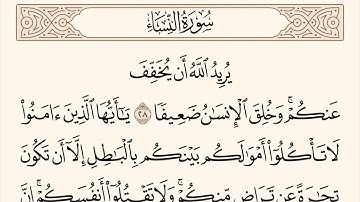 سُورَةُ النِّسَاءِ
يُرِيدُ ٱللَّهُ أَن يُخَفِّفَ
عَنكُمْۚ وَخُلِقَ ٱلْإِنسَٰنُ ضَعِيفًا ٢٨ يَٰٓأَيُّهَا ٱلَّذِينَ ءَامَنُوا۟
لَا تَأْكُلُوٓا۟ أَمْوَٰلَكُم بَيْنَكُم بِٱلْبَٰطِلِ إِلَّآ أَن تَكُونَ
تِجَٰرَةً عَن تَرَاضٍ مِّنكُمْۚ وَلَا تَقْتُلُوٓا۟ أَنفُسَكُمْۚ إِنَّ